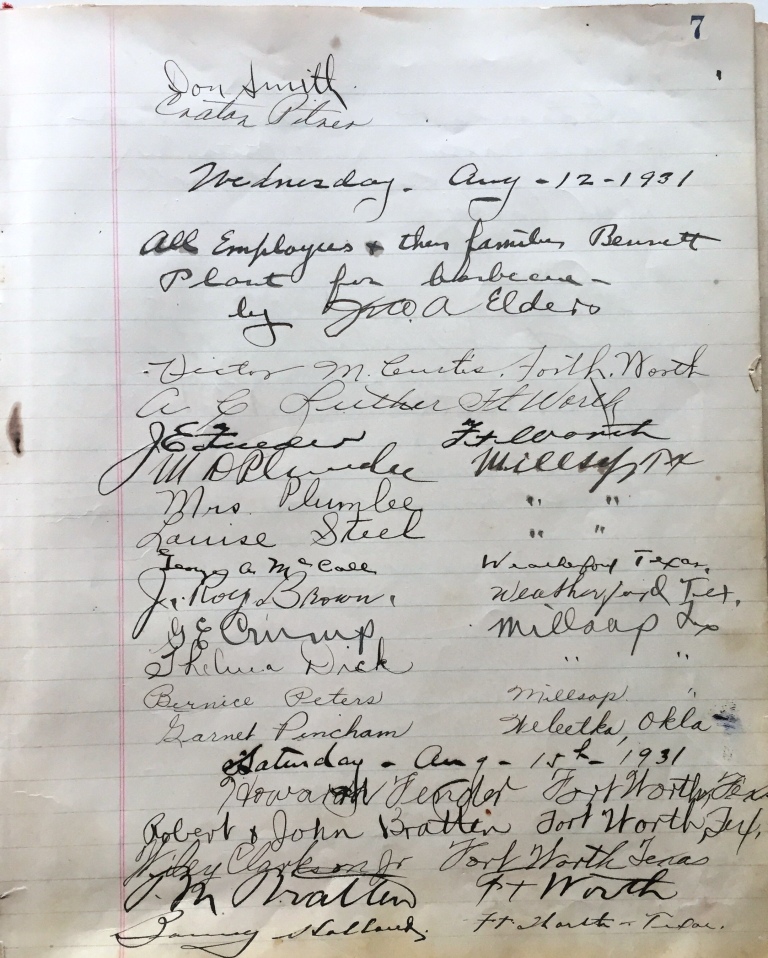 7
Don Smith
Wednesday - Aug - 12 - 1931
All Employees & their families Bennett
Plant for barbecue -
by Jno. A Elders
Victor M. Curtis. Forth. Worth
A C Luther Ft Worth
J E Ft Worth
M D Plumlee Millsap, Tx
Mrs. Plumlee " "
Louise Steel " "
George A. McCall Weatherford Texas.
J. Roy Brown. Weatherford Tex.
G E Crump Millsap Tx
Thelma Dick " "
Bernice Peters Millsap "
Garnet Pincham Weleetka, Okla
Saturday - Aug - 15th - 1931
Howard Fender Fort Worth, Tex
Robert & John Bratten Fort Worth, Tex.
Wiley Clarkson Jr Fort Worth Texas
J. M Bratten Ft Worth
Holland Ft. Worth - Texas.